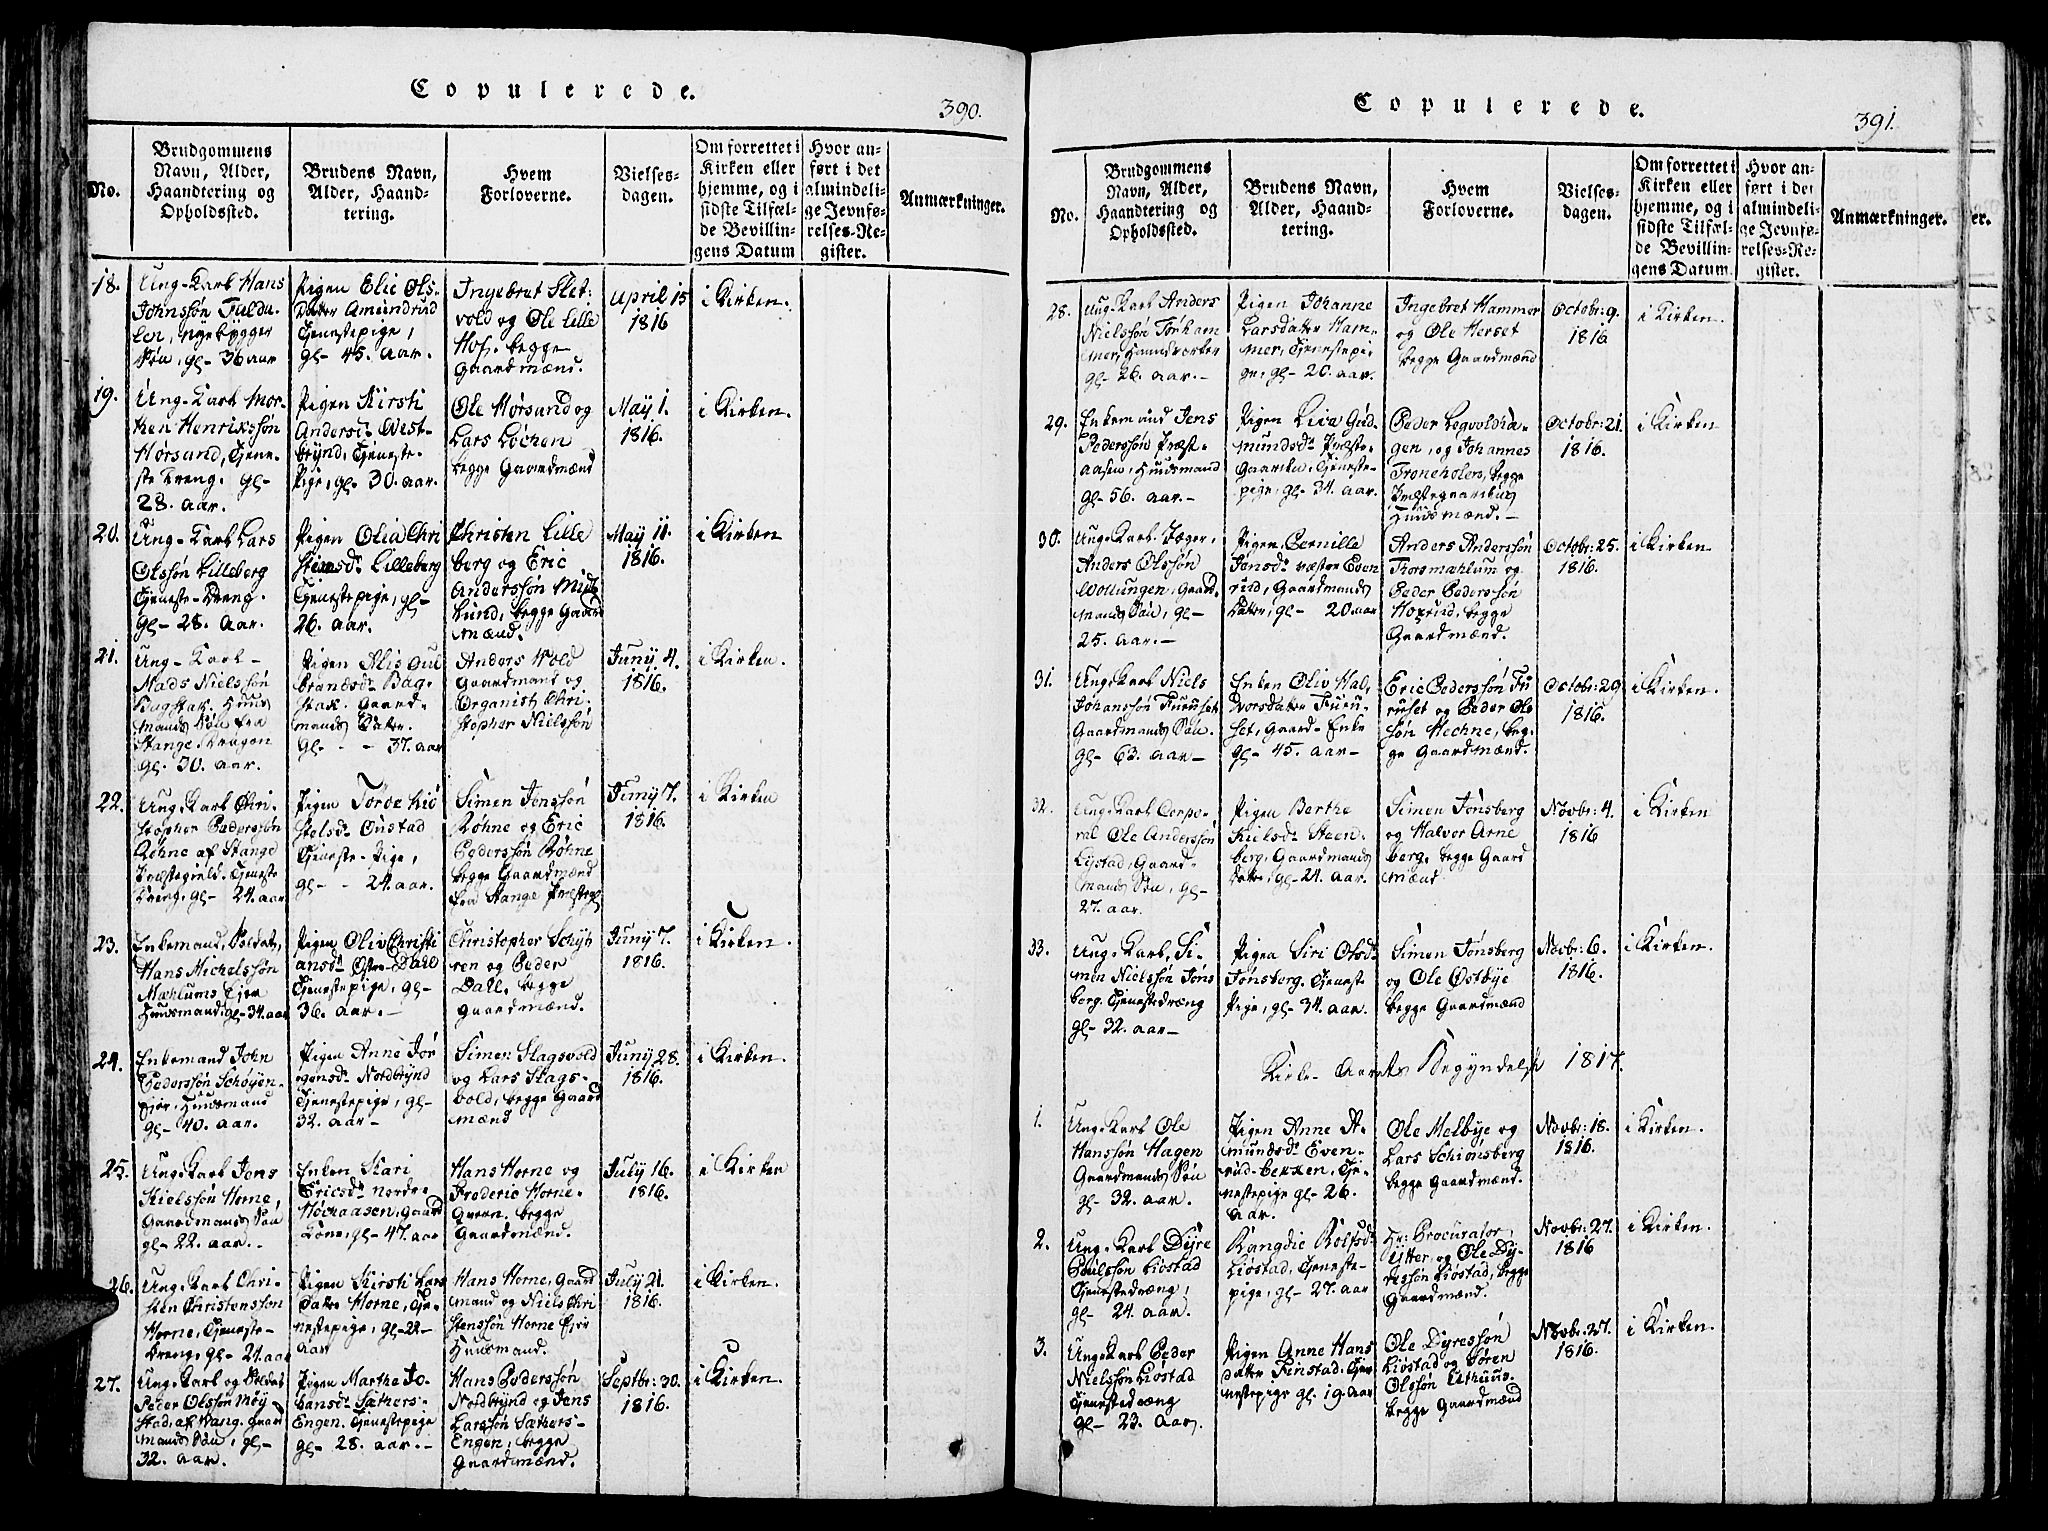 Copulerede.
390.
No.
Brudgommens Navn, Alder, Haandtering og Opholdssted.
Brudens Navn, Alder, Haandtering.
Hvem Forloverne.
Vielsesdagen.
Om forrettet i Kirken eller hjemme, og i sidste Tilfælde Bevillingens Datum
Hvor anført i det almindelige Jevnførelses-Register.
Anmærkninger.
18.
Ung-Karl Hans
Johnssøn
nyebygger
Søn, gl- 36 aar
Pigen Elie Ols-
Datter Amundrud
Tjenestepige,
gl- 45. aar.
Ingebret Slet-
vold og Ole Lille
Hof, begge
Gaardmænd.
April 15
1816
i Kirken.
19.
Ung-Karl Mor-
then Henrikssøn
Hørsund, Tjene-
ste Dreng. gl-
28. aar.
Pigen Kirsti
Andersd. West-
brynd, Tjeneste-
Pige, gl- 30. aar.
Ole Hørsund og
Lars Løchen
begge Gaardmænd
May 1.
1816.
i Kirken.
20.
Ung-Karl Lars
Olssøn Lilleberg
Tjeneste-Dreng.
gl- 28. aar.
Pigen Olia Chri
stensd. Lilleberg
Tjenestepige, gl-
26. aar.
Christen Lille
berg og Eric
Anderssøn Midt
lund, begge Gaard
mænd.
May 11.
1816.
i Kirken
21.
Ung-Karl-
Mads Nielssøn
Bagstak. Huus
mands Søn fra
Stange. Dragon
gl. 30. aar.
Pigen Alis Gul
brandsd. Bag-
stak. Gaard-
mands Datter.
gl- - - 37. aar
Anders Wold
Gaardmand og
Organist Chri-
stopher Nielssøn
Juny 4.
1816.
i Kirken.
22.
Ung-Karl Chri-
stopher Pederssøn
Røhne af Stange
Præstegield. Tjeneste
Dreng, gl- 24. aar
Pigen
stelsd. Onstad
Tjeneste-Pige,
gl- - 24. aar.
Simen Jonssøn
Røhne og Eric
Pederssøn Røhne
begge Gaardmænd
fra Stange Præsteg
Juny 7.
1816.
i Kirken
23.
Enkemand, Soldat,
Hans Michelssøn
Mæhlums Ejer
Huusmand, gl- 34. aar
Pigen Oliv Christi
ansd. Østre-Dall
Tjenestepige, gl-
36. aar.-
Christopher Schyb
ren og Peder
Dall, begge
Gaardmænd.
Juny 7.
1816.
i Kirken.
24.
Enkemand John
Pederssøn Schøyen-
Ejer, Huusmand
gl- 40. aar.
Pigen Anne Jør
gensd. Nordbrynd
Tjenestepige, gl-
32. aar-
Simen Slagsvold
og Lars Slags-
vold, begge Gaard
mænd
Juny 28.
1816.
i Kirken.
25.
Ung-Karl Jens
Kielssøn Horne,
Gaardmands Søn
gl- 22. aar.-
Enken Kari
Ericsd. Nordre-
gaard
Kone, gl- 47. aar
Hans Horne og
Frederic Horne-
Qvern. begge
Gaardmænd.
July 16.
1816.
i Kirken
26.
Ung-Karl Chri-
sten Christenssøn
Horne, Tjeneste-
Dreng, gl- 24. aar
Pigen Kirsti Lars
Datter Horne, Tje-
nestepige, gl- 22-
aar
Hans Horne, Gaard
mand og Niels Chri
stenssøn Horne Ejer
Huusmand.
July 21.
1816.
i Kirken.
27.
Ung-Karl og Soldat
Peder Olssøn Møy-
stad, af Vang. Gaard
mands Søn, gl-
32. aar.
Pigen Marthe Jo-
hansd. Sæthers-
Engen. Tjenestepige
gl- 28. aar.-
Hans Pederssøn
Nordbrynd og Jens
Larssøn Sæthers-
Engen, begge
Gaardmænd.
Septbr: 30.
1816.
i Kirken.
Copulerede.
391.
No.
Brudgommens Navn, Alder, Haandtering og Opholdssted.
Brudens Navn, Alder, Haandtering.
Hvem Forloverne.
Vielsesdagen.
Om forrettet i Kirken eller hjemme, og i sidste Tilfælde Bevillingens Datum.
Hvor anført i det almindelige Jevnførelses-Register.
Anmærkninger.
28.
Ung-Karl Anders
Nielssøn Torham
mer, Haandverker
gl- 26. aar.-
Pigen Johanne
Larsdatter Ham-
mer, Tjenestepi-
ge, gl- 20. aar.
Ingebret Hammer
og Ole Herset
begge Gaardmænd
Octobr: 9.
1816
i Kirken.
29.
Enkemand Jens
Pederssøn Præst-
aasen, Huusmand
gl- 56. aar.-
Pigen Lisa Gud-
mundsd. Præste-
Gaarden, Tjeneste-
pige, gl- 34. aar.
Peder
gen, og Johannes
Troneholen, begge
Præstegaardens
Huusmænd.-
Octobr: 21.
1816.
i Kirken
30.
Ung-Karl. Jæger,
Anders Olssøn
Wollungen, Gaard
mands Søn, gl-
25. aar.-
Pigen, Pernille
Jensd. Vestre Even
rud, Gaardmands
Datter, gl- 20 aar
Anders Anderssøn
Thorsmæhlum og
Peder Pederssøn
begge
Gaardmænd.
Octobr: 25.
1816.
i Kirken
31.
Ung-Karl Niels
Johanssøn Furuset
Gaardmands Søn.
gl- 63. aar-
Enken Oliv Hal
vorsdatter Furu-
set, Gaard-Enke
gl- 45. aar-
Eric Pederssøn Fu
ruset og Peder Ols
søn Mechne, beg-
ge Gaardmænd.
Octobr: 29
1816.
i Kirken.
32.
Ung-Karl Corpo-
ral Ole Anderssøn
Lystad, Gaard-
mands Søn, gl-
27. aar.
Pigen Berthe
Kielsd. Steen-
berg, Gaardmands
Datter, gl- 24. aar.
Simen Jønsberg
og Halvor Arne
berg, begge Gaard
mænd
Novbr: 4.
1816
i Kirken
33.
Ung-Karl, Si-
men Nielssøn Jøns
berg. Tjenestedræng
gl- 32. aar-
Pigen Siri Olsd.
Jønsberg. Tjeneste
Pige, gl- 34. aar.
Simen Jønsberg
og Ole Østbye
begge Gaardmænd
Novbr: 6.
1816.
i Kirken.
Kirke-Aarets Begyndelse 1817.
1.
Ung-Karl Ole
Hanssøn Hagen
Gaardmands Søn
gl- 32. aar.
Pigen Anne A-
mundsd. Even-
rud-bekken, Tje-
nestepige gl- 26.
aar.
Ole Melbye og
Lars Schiønsberg
begge Gaardmænd.
Novbr: 18.
1816.
i Kirken.
2.
Ung-Karl Dyre
Poulssøn Liøstad
Tjenestedræng,
gl- 24. aar.
Rangdie Rolfsd.
Liøstad, Tjeneste-
pige, gl- 27. aar
Hr: Procurator
Utter og Ole Dy-
ressøn Liøstad, begge
Gaardmænd.
Novbr: 27.
1816
i Kirken.
3.
Ung-Karl Peder
Nielssøn Liøstad
Tjenestedræng
gl- 23. aar.
Pigen Anne Hans
datter Finstad. Tje-
nestepige gl. 19 aar
Ole Dyressøn
Liøstad og Søren
Olssøn Uthuus.
begge Gaardmænd
Novbr: 27.
1816.
i Kirken.